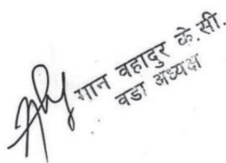 गान वहादुर के.सी.
वडा अध्यक्ष